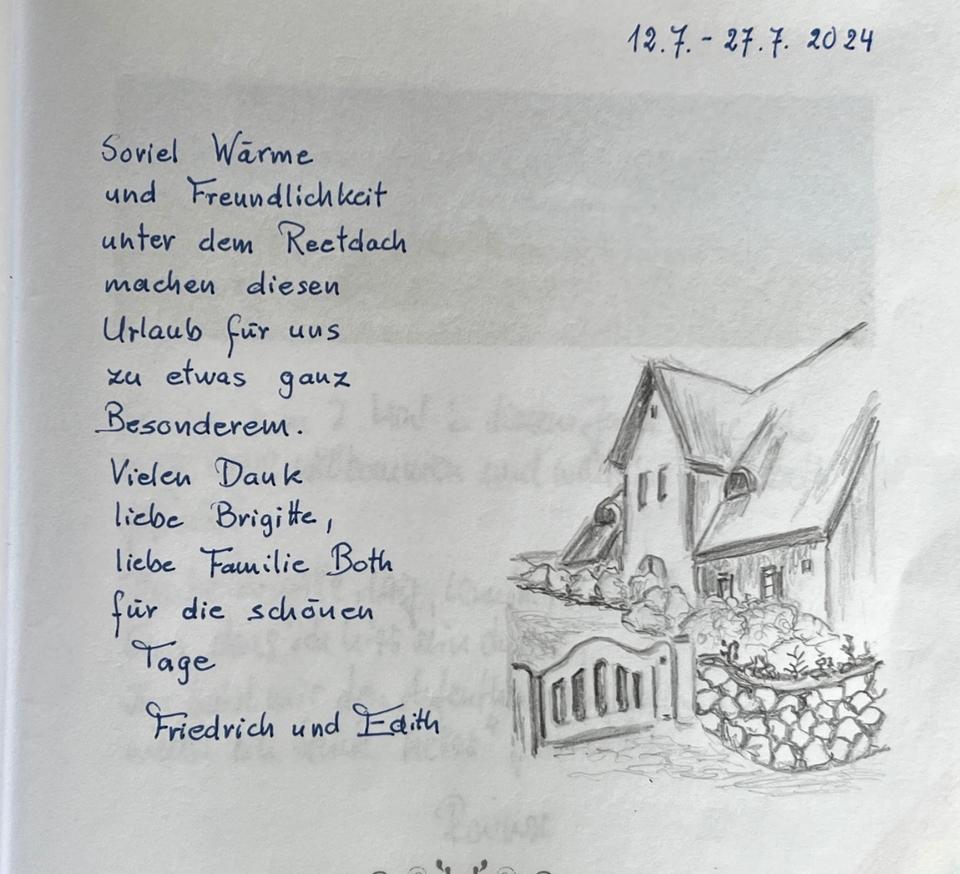 12.7. - 27.7. 2024
Soviel Wärme
und Freundlichkeit
unter dem Reetdach
machen diesen
Urlaub für uns
zu etwas ganz
Besonderem.
Vielen Dank
liebe Brigitte,
liebe Familie Both
für die schönen
Tage
Friedrich und Edith